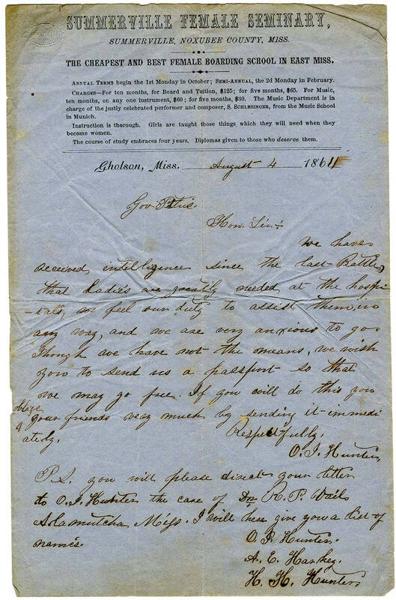 SUMMERVILLE FEMALE SEMINARY,
SUMMERVILLE, NOXUBEE COUNTY, MISS.
THE CHEAPEST AND BEST FEMALE BOARDING SCHOOL IN EAST MISS.
ANNUAL TERMS begin the 1st Monday in October; SEMI-ANNUAL, the 2d Monday in February.
CHARGES—For ten months, for Board and Tuition, $125; for five months, $65. For Music,
ten months, on any one instrument, $60; for five months, $30. The Music Department is in
charge of the justly celebrated performer and composer, S. SCHLESINGER, from the Music School
in Munich.
Instruction is thorough. Girls are taught those things which they will need when they
become women.
The course of study embraces four years. Diplomas given to those who deserve them.
Gholson, Miss. August 4 1861
Gov. Pettus
Hon. Sir:
We have
received intelligence since the last Battle,
that Ladies are greatly needed at the hospi-
tals, we feel our duty to assist them, in
any way, and we are very anxious to go
Though we have not the means, we wish
you to send us a passport so that
we may go free. If you will do this you
oblige
your friends very much by sending it immedi
ately.
Respectfully,
O. J. Hunter
P.S. you will please direct your letter
to O. J. Hunter the case of Dr. H. P.
Miss. I will here give you a list of
names.
O. J. Hunter.
A. E.
H. H. Hunter